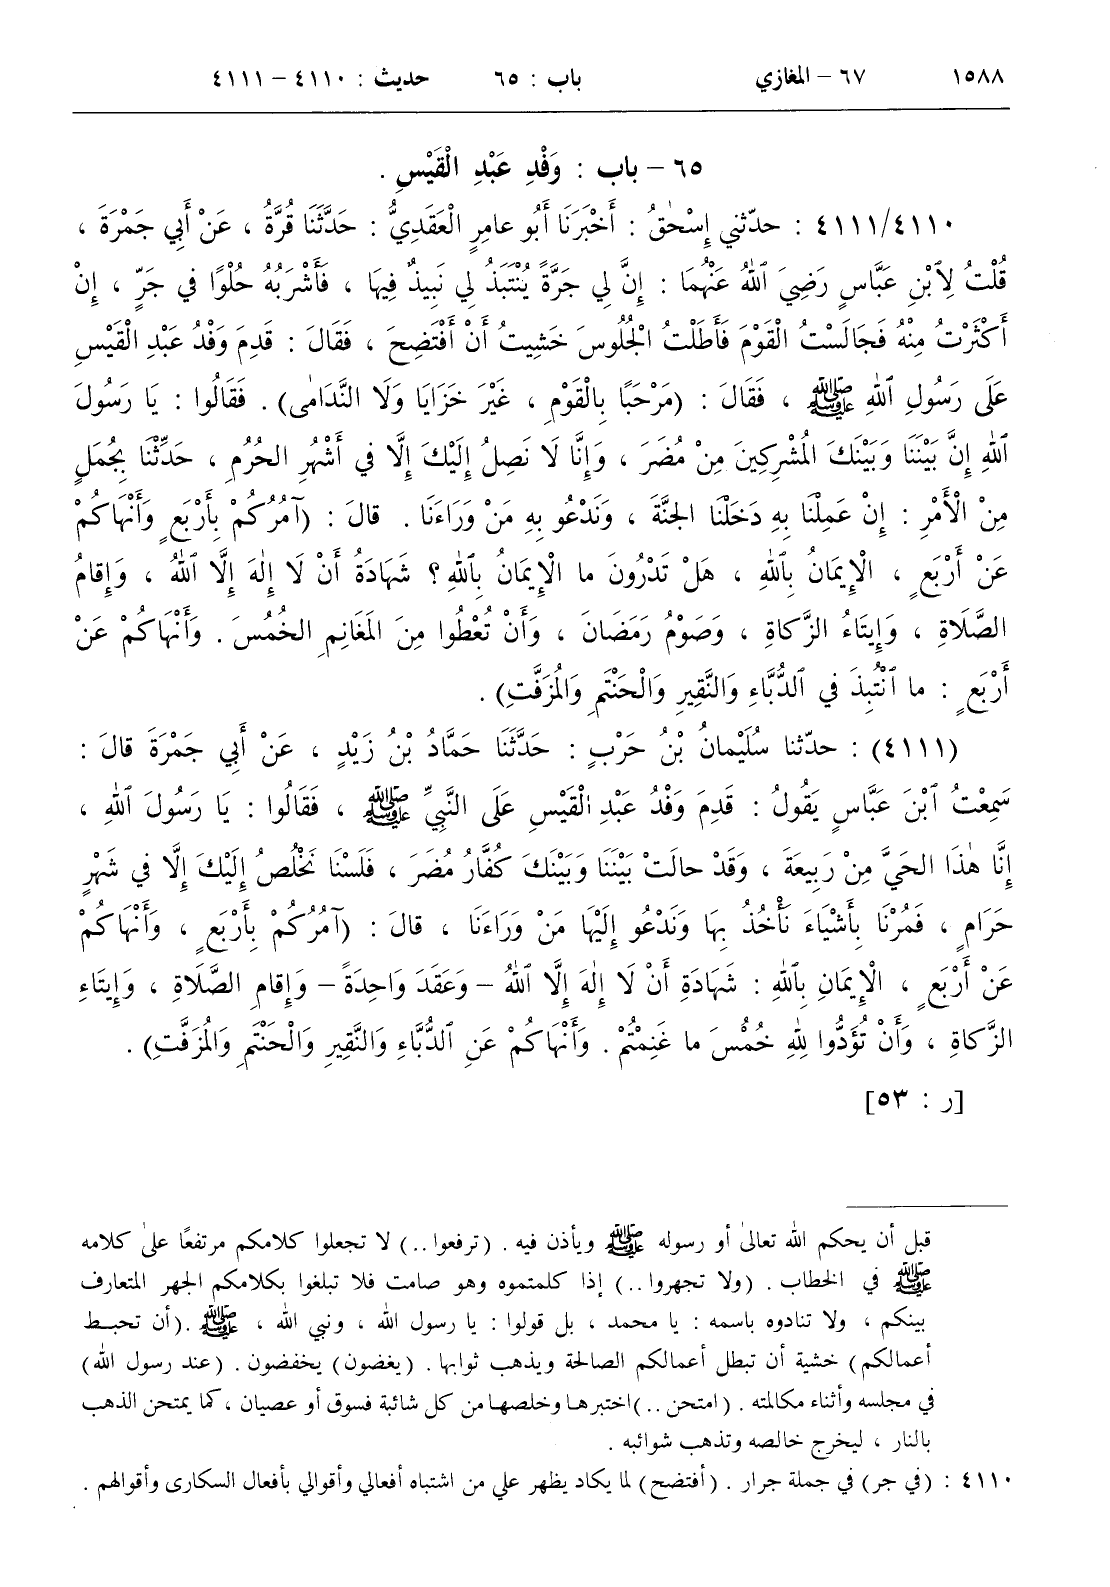 ١٥٨٨ ٦٧ – المغازي باب : ٦٥ حديث : ٤١١٠ – ٤١١١
٦٥ – باب : وَفْدِ عَبْدِ الْقَيْسِ .
٤١١١/٤١١٠ : حدّثني إِسْحٰقُ : أَخْبَرَنَا أَبُو عامِرٍ الْعَقَدِيُّ : حَدَّثَنَا قُرَّةُ ، عَنْ أَبِي جَمْرَةَ ،
قُلْتُ لِابْنِ عَبَّاسٍ رَضِيَ ٱللهُ عَنْهُمَا : إِنَّ لِي جَرَّةً يُنْتَبَذُ لِي نَبِيذٌ فِيهَا ، فَأَشْرَبُهُ حُلْوًا فِي جَرٍّ ، إِنْ
أَكْثَرْتُ مِنْهُ فَجَالَسْتُ الْقَوْمَ فَأَطَلْتُ الْجُلُوسَ خَشِيتُ أَنْ أَفْتَضِحَ ، فَقَالَ : قَدِمَ وَفْدُ عَبْدِ الْقَيْسِ
عَلَى رَسُولِ ٱللهِ ﷺ ، فَقَالَ : (مَرْحَبًا بِالْقَوْمِ ، غَيْرَ خَزَايَا وَلَا النَّدَامٰى) . فَقَالُوا : يَا رَسُولَ
ٱللهِ إِنَّ بَيْنَنَا وَبَيْنَكَ الْمُشْرِكِينَ مِنْ مُضَرَ ، وَإِنَّا لَا نَصِلُ إِلَيْكَ إِلَّا فِي أَشْهُرِ الحُرُمِ ، حَدِّثْنَا بِجُمَلٍ
مِنَ الْأَمْرِ : إِنْ عَمِلْنَا بِهِ دَخَلْنَا الجَنَّةَ ، وَنَدْعُو بِهِ مَنْ وَرَاءَنَا . قالَ : (آمُرُكُمْ بِأَرْبَعٍ وَأَنْهَاكُمْ
عَنْ أَرْبَعٍ ، الْإِيمَانُ بِٱللهِ ، هَلْ تَدْرُونَ ما الْإِيمَانُ بِٱللهِ ؟ شَهَادَةُ أَنْ لَا إِلٰهَ إِلَّا ٱللهُ ، وَإِقامُ
الصَّلَاةِ ، وَإِيتَاءُ الزَّكاةِ ، وَصَوْمُ رَمَضَانَ ، وَأَنْ تُعْطُوا مِنَ المَغَانِمِ الخُمُسَ . وَأَنْهَاكُمْ عَنْ
أَرْبَعٍ : ما ٱنْتُبِذَ فِي ٱلدُّبَّاءِ وَالنَّقِيرِ وَالْحَنْتَمِ وَالْمُزَفَّتِ) .
(٤١١١) : حدّثنا سُلَيْمانُ بْنُ حَرْبٍ : حَدَّثَنَا حَمَّادُ بْنُ زَيْدٍ ، عَنْ أَبِي جَمْرَةَ قالَ :
سَمِعْتُ ٱبْنَ عَبَّاسٍ يَقُولُ : قَدِمَ وَفْدُ عَبْدِ الْقَيْسِ عَلَى النَّبِيِّ ﷺ ، فَقَالُوا : يَا رَسُولَ ٱللهِ ،
إِنَّا هٰذَا الحَيَّ مِنْ رَبِيعَةَ ، وَقَدْ حالَتْ بَيْنَنَا وَبَيْنَكَ كُفَّارُ مُضَرَ ، فَلَسْنَا نَخْلُصُ إِلَيْكَ إِلَّا فِي شَهْرٍ
حَرَامٍ ، فَمُرْنَا بِأَشْيَاءَ نَأْخُذُ بِهَا وَنَدْعُو إِلَيْهَا مَنْ وَرَاءَنَا ، قالَ : (آمُرُكُمْ بِأَرْبَعٍ ، وَأَنْهَاكُمْ
عَنْ أَرْبَعٍ ، الْإِيمَانِ بِٱللهِ : شَهَادَةِ أَنْ لَا إِلٰهَ إِلَّا ٱللهُ – وَعَقَدَ وَاحِدَةً – وَإِقامِ الصَّلَاةِ ، وَإِيتَاءِ
الزَّكاةِ ، وَأَنْ تُؤَدُّوا لِلهِ خُمُسَ ما غَنِمْتُمْ . وَأَنْهَاكُمْ عَنِ ٱلدُّبَّاءِ وَالنَّقِيرِ وَالْحَنْتَمِ وَالْمُزَفَّتِ) .
[ر : ٥٣]
قبل أن يحكم الله تعالىٰ أو رسوله ﷺ ويأذن فيه . (ترفعوا ..) لا تجعلوا كلامكم مرتفعًا علىٰ كلامه
ﷺ في الخطاب . (ولا تجهروا ..) إذا كلمتموه وهو صامت فلا تبلغوا بكلامكم الجهر المتعارف
بينكم ، ولا تنادوه باسمه : يا محمد ، بل قولوا : يا رسول الله ، ونبي الله ، ﷺ .(أن تحبط
أعمالكم) خشية أن تبطل أعمالكم الصالحة ويذهب ثوابها . (يغضون) يخفضون . (عند رسول الله)
في مجلسه وأثناء مكالمته . (امتحن ..)اختبرها وخلصها من كل شائبة فسوق أو عصيان ، كما يمتحن الذهب
بالنار ، ليخرج خالصه وتذهب شوائبه .
٤١١٠ : (في جر) في جملة جرار . (أفتضح) لما يكاد يظهر علي من اشتباه أفعالي وأقوالي بأفعال السكارى وأقوالهم .